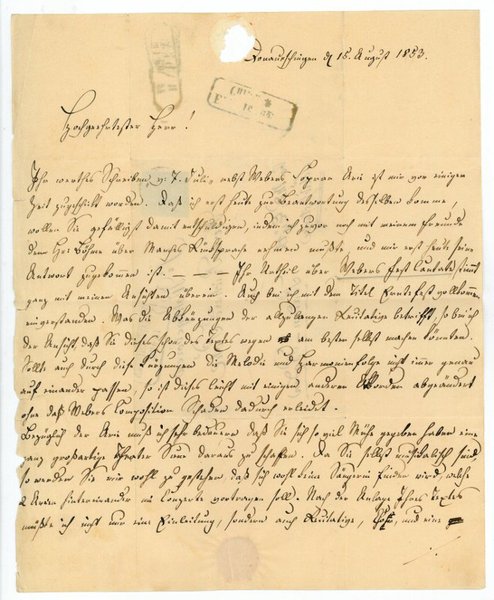 Donaueschingen d 15. August 1853.
Hochgeehrtester Herr!
Ihr werthes Schreiben v. 7. Juli, nebst Webers Sopran Arie ist mir vor einigen
Zeit zugeschickt worden. Daß ich erst heute zur Beantwortung desselben komme,
wollen Sie gefälligst damit entschuldigen, indem ich zuvor noch mit meinem Freunde
dem Hrn Böhm über Manches Rücksprache nehmen mußte und mir erst heute seine
Antwort zugekommen ist. — — — Ihr Urtheil über Webers Fest Cantate stimmt
ganz mit meinen Ansichten überein. Auch bin ich mit dem Titel Erntefest vollkommen
einverstanden. Was die Abkürzungen der allzulangen Recitative betrifft, so bin ich
der Ansicht daß Sie dieses schon des Textes wegen am besten selbst machen könnten.
Sollte auch durch diese Kürzungen die Melodie und Harmonienfolge nicht immer genau
auf einander passen, so ist dieses leicht mit einigen anderen Akkorden abgeändert
ohne daß Webers Composition Schaden dadurch erleidet.
Bezüglich der Arie muß ich sehr bedauern daß Sie sich so viel Mühe gegeben haben eine
ganz großartige Theater Scene daraus zu schaffen. Da Sie selbst musikalisch sind
so werden Sie mir wohl zu gestehen daß sich wohl keine Sängerin finden wird, welche
2 Arien hintereinander im Conzerte vortragen soll. Nach der Anlage Ihres Textes
müßte ich nicht nur eine Einleitung, sondern auch Recitative, und eine